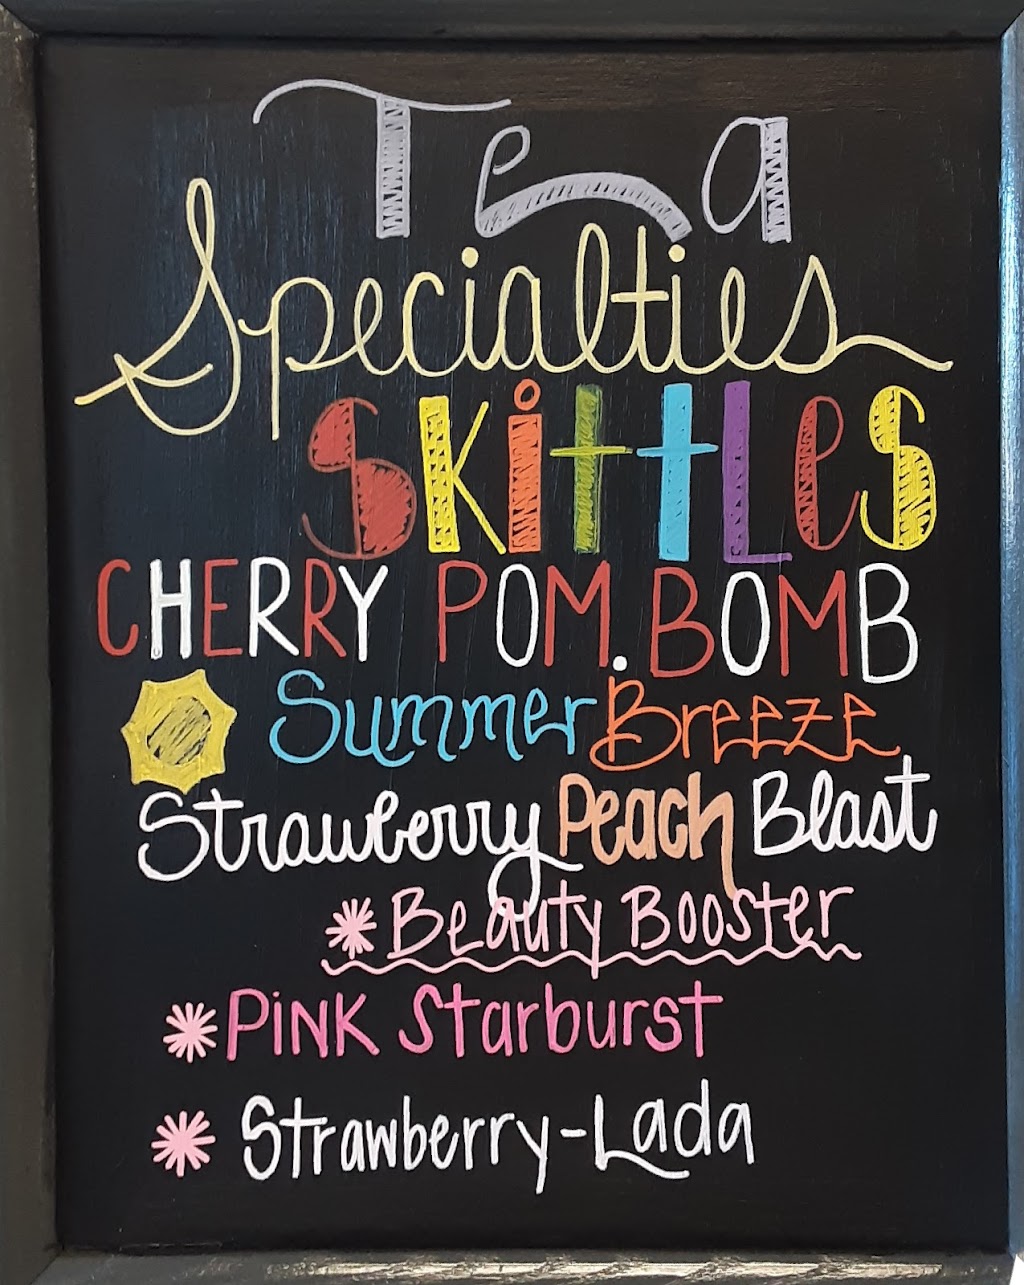 Tea
Specialties
Skittles
CHERRY POM. BOMB
Summer Breeze
Strawberry Peach Blast
* Beauty Booster
* PiNK Starburst
* Strawberry-Lada